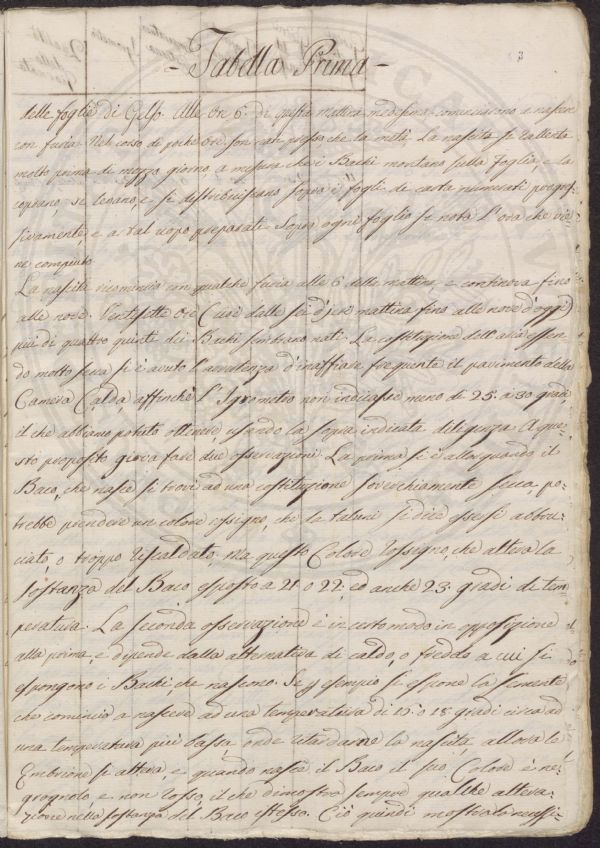 3
- Tabella Prima -
delle foglie di Gelso. Alle Ore 6. di questa mattina medesima cominciarono a nascere
con furia. Nel corso di poche Ore son nati presso che la metà. La nascita si rallenta
molto prima di mezzo giorno, a misura che i Bachi montano sulla Foglia, e la
coprano, si levano, e si distribuiscano sopra i fogli di carta numerati progres-
sivamente, e a tal uopo preparati. Sopra ogni foglio si nota l'ora che vie-
ne compiuto.
La nascita ricomincia con qualche furia alle 6 della mattina, e continova fino
alle nove. Ventisette Ore (cioè dalle sei d'jeri mattina fino alle nove d'oggi)
più di quattro quinti dei Bachi sembrano nati. La costituzione dell'aria essen-
do molto secca si è avuto l'avvertenza d'inaffiare frequente il pavimento della
Camera Calda, affinchè l'Igrometro non indicasse meno di 25. a 30 gradi,
il che abbiamo potuto ottenere, usando la sopra indicata diligenza. A que-
sto proposito giova fare due osservazioni. La prima si è allorquando il
Baco, che nasce si trova ad una costituzione soverchiamente secca, po-
trebbe prendere un colore rossigno, che da taluni si dice essersi abbru-
ciato, o troppo riscaldato, ma questo Colore rossigno, che altera la
sostanza del Baco esposto a 21 o 22, ed anche 23. gradi di tem-
peratura. La seconda osservazione è in certo modo in opposizione
alla prima, e dipende dalla alternativa di caldo, o freddo a cui si
espongono i Bachi che nascono. Se p esempio si espone la semente
che comincia a nascere ad una temperatura di 15. o 18. gradi circa ad
una temperatura più bassa, onde ritardarne la nascita, allora l'e
Embrione si altera, e quando nasce il Baco il suo Colore è ne-
grognolo, e non rosso, il che dimostra sempre qualche altera-
zione nella sostanza del Baco stesso. Ciò quindi mostra la